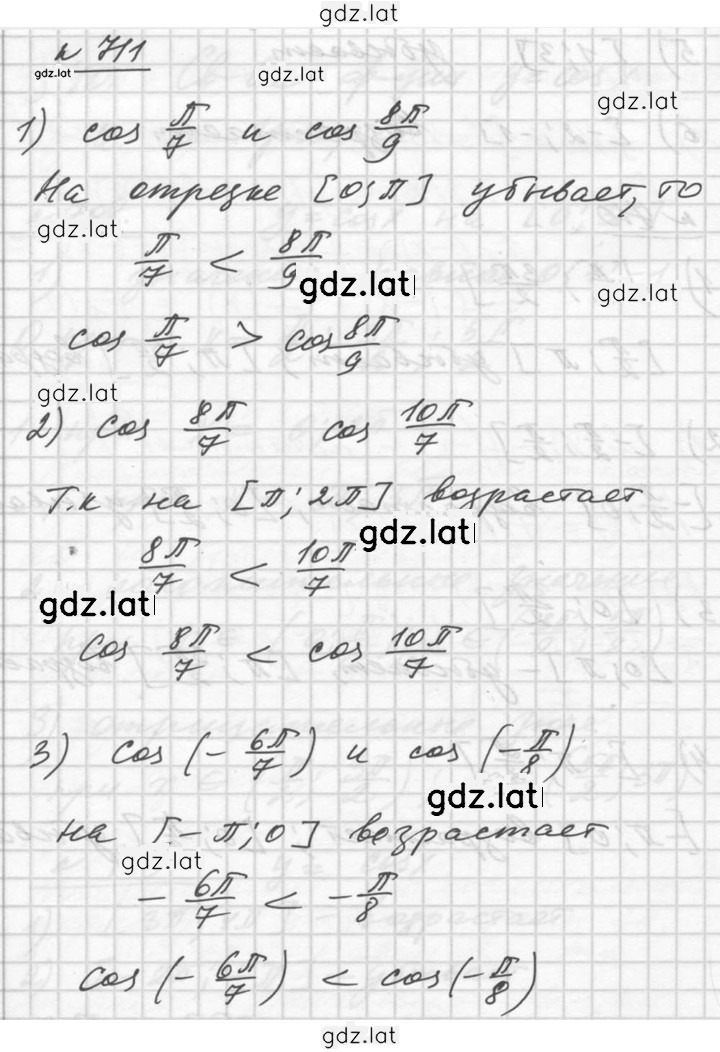 gdz.lat
№ 711
gdz.lat
gdz.lat
gdz.lat
1) cos π/7 и cos 8π/9
На отрезке [0;π] убывает, то
gdz.lat
π/7 < 8π/9
gdz.lat
gdz.lat
cos π/7 > cos 8π/9
gdz.lat
2) cos 8π/7 cos 10π/7
Т.к на [π; 2π] возрастает
gdz.lat
8π/7 < 10π/7
gdz.lat
cos 8π/7 < cos 10π/7
3) cos (- 6π/7) и cos (-π/8)
gdz.lat
на [-π; 0] возрастает
gdz.lat
- 6π/7 < - π/8
cos (- 6π/7) < cos (-π/8)
gdz.lat